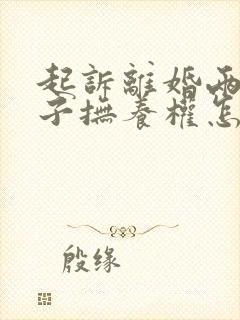 起訴離婚兩
子撫養權怎
殷缘